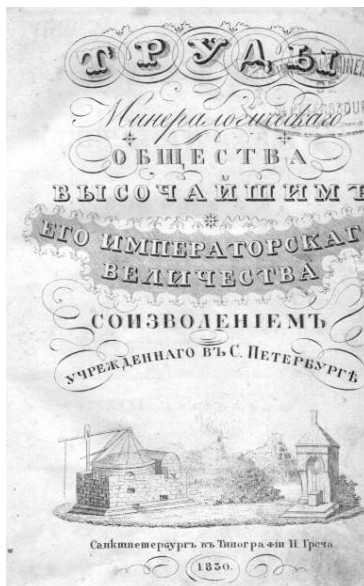 ТРУДЫ
Минералогическаго
ОБЩЕСТВА
ВЫСОЧАЙШИМЪ
ЕГО ИМПЕРАТОРСКАГ
ВЕЛИЧЕСТВА
СОИЗВОЛЕНІЕМЪ
УЧРЕЖДЕННАГО ВЪ С. ПЕТЕРБУРГѢ
Санктпетербургъ въ Типографіи Н. Греча.
1830.